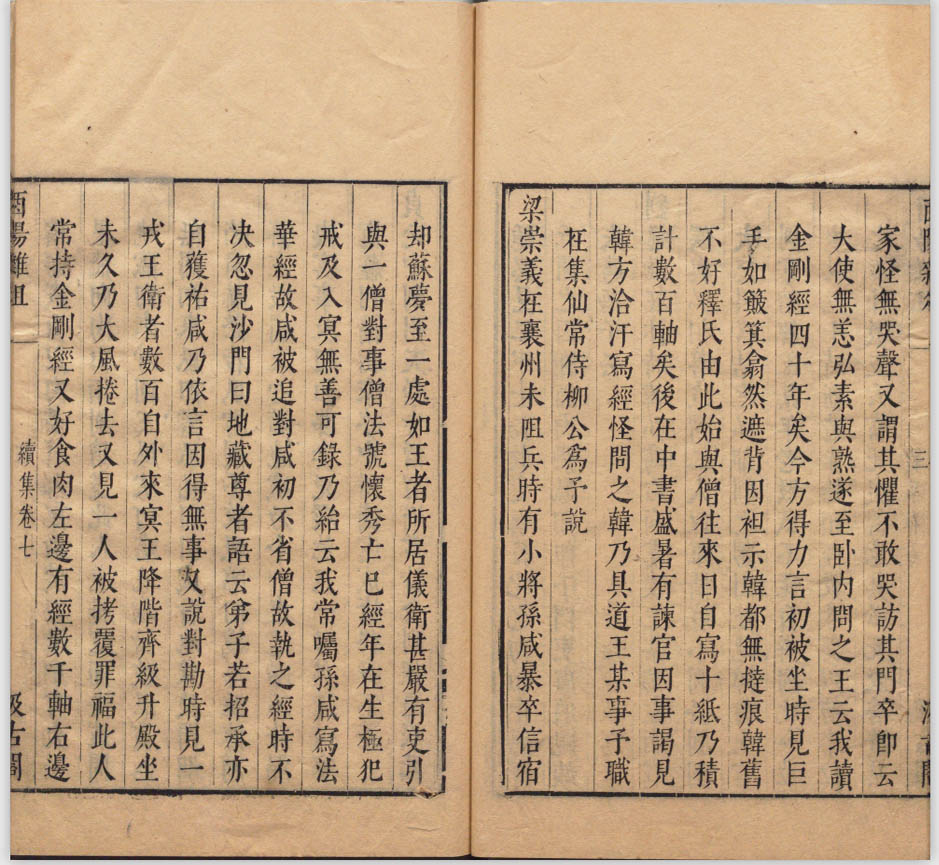 三
家怪無哭聲又謂其懼不敢哭訪其門卒即云
大使無恙弘素與熟遂至卧内問之王云我讀
金剛經四十年矣今方得力言初被坐時見巨
手如簸箕翕然遮背因袒示韓都無撻痕韓舊
不好釋氏由此始與僧往來日自寫十紙乃積
計數百軸矣後在中書盛暑有諫官因事謁見
韓方洽汗寫經怪問之韓乃具道王某事予職
在集仙常侍柳公爲予說
梁崇義在襄州未阻兵時有小將孫咸暴卒信宿
却蘇夢至一處如王者所居儀衛甚嚴有吏引
與一僧對事僧法號懷秀亡已經年在生極犯
戒及入冥無善可錄乃紿云我常囑孫咸寫法
華經故咸被追對咸初不省僧故執之經時不
决忽見沙門曰地藏尊者語云弟子若招承亦
自獲祐咸乃依言因得無事又說對勘時見一
戎王衛者數百自外來冥王降階齊級升殿坐
未久乃大風捲去又見一人被拷覆罪福此人
常持金剛經又好食肉左邊有經數千軸右邊
酉陽雜俎 續集卷七 汲古閣